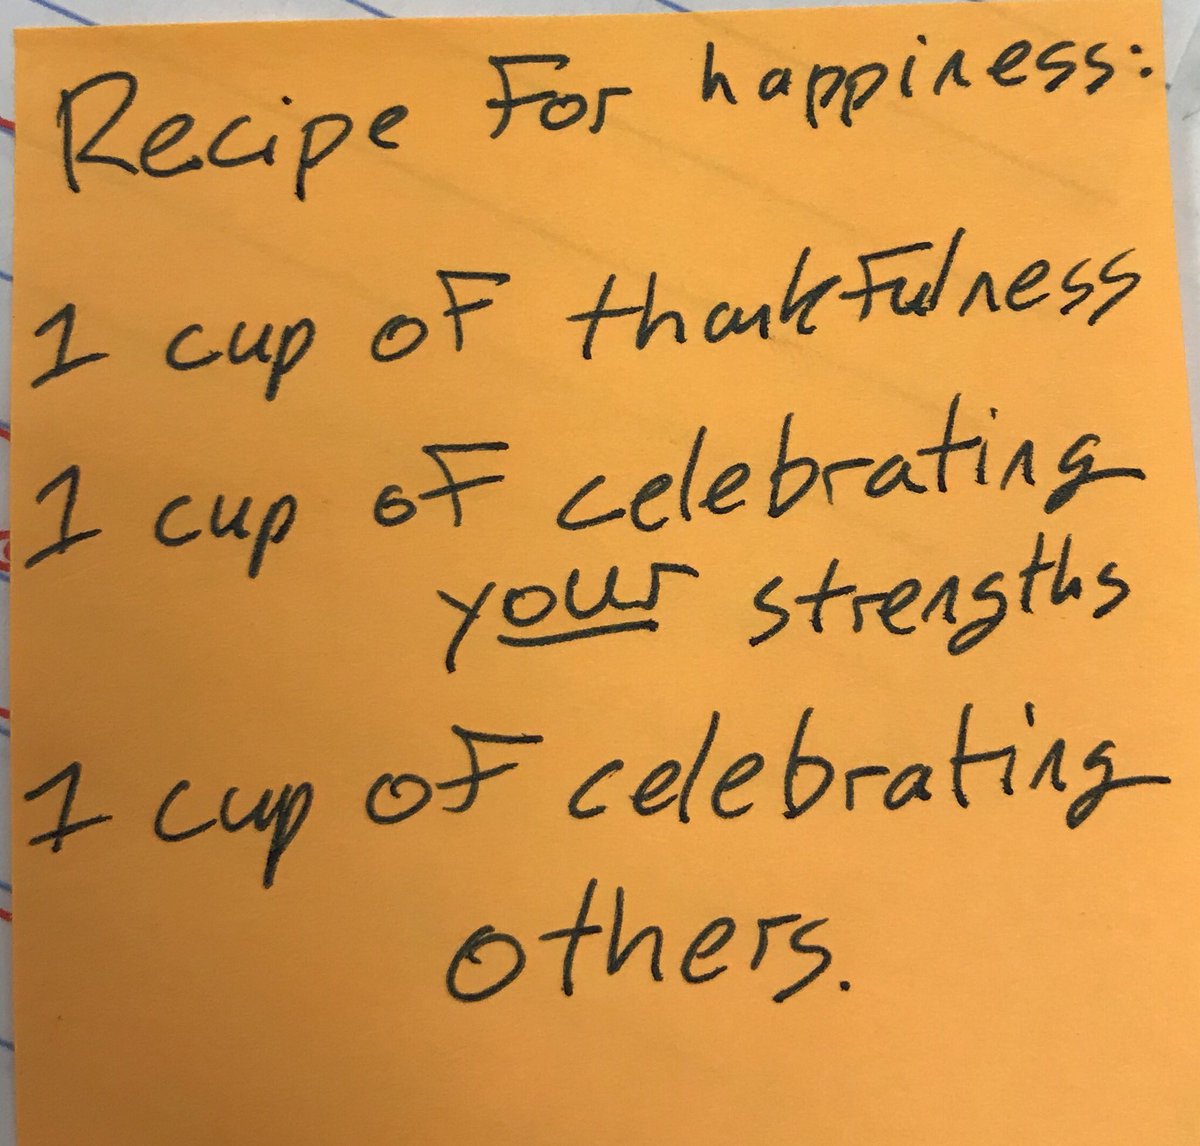 Recipe For happiness:
1 cup of thankfulness
1 cup of celebrating
your strengths
1 cup of celebrating
others.